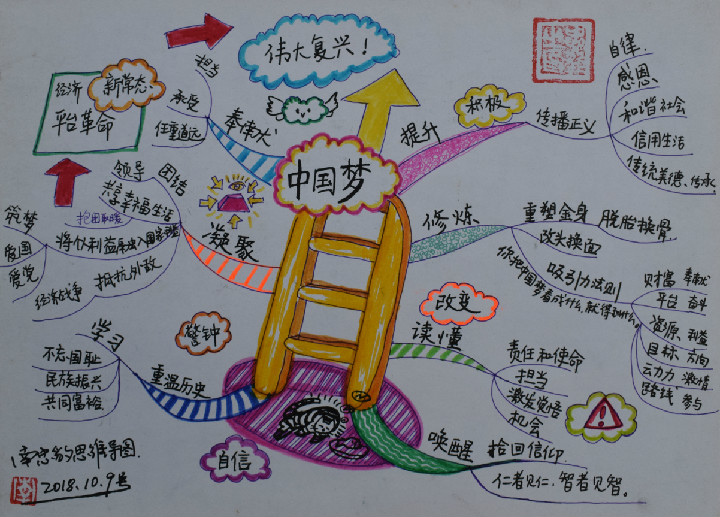 中国梦
伟大复兴！
经济
新常态
平台革命
担当
承受
任重道远
奉律犬
提升
积极
传播正义
自律
感恩
和谐社会
信用生活
传统美德、传承
修炼
重塑金身 脱胎换骨
改头换面
吸引力法则
你把中国梦看成什么，就得到什么。
财富 奉献
平台 奋斗
资源、利益
目标 方向
云力力 激情
路线 参与
改变
读懂
责任和使命
担当
激发觉悟
机会
唤醒
拾回信仰
仁者见仁、智者见智。
自信
警钟
重温历史
学习
不忘国耻
民族振兴
共同富裕
凝聚
领导 团结
共享幸福生活
抱团取暖
筑梦
爱国
爱党
抵抗外敌
经济战争
思维导图
2018.10.9号